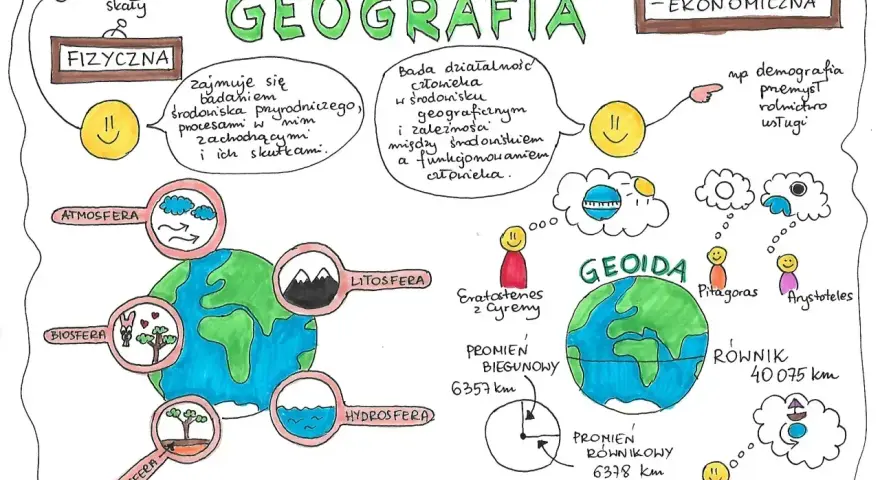 skały
GEOGRAFIA
- EKONOMICZNA
FIZYCZNA
Zajmuje się
badaniem
środowiska przyrodniczego,
procesami w nim
zachodzącymi
i ich skutkami.
Bada działalność
człowieka
w środowisku
geograficznym
i zależności
między środowiskiem
a funkcjonowaniem
człowieka.
np demografia
przemysł
rolnictwo
usługi
ATMOSFERA
LITOSFERA
BIOSFERA
HYDROSFERA
SFERA
Eratostenes
z Cyreny
GEOIDA
Pitagoras
Arystoteles
PROMIEŃ
BIEGUNOWY
6357 km
RÓWNIK
40 075 km
PROMIEŃ
RÓWNIKOWY
6378 km